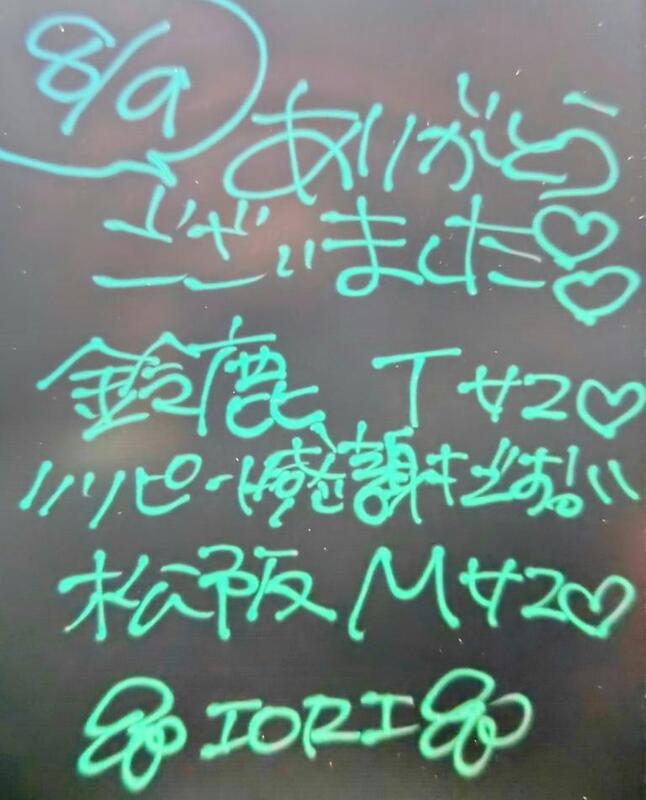 8/9
ありがとう
ございました♡♡
鈴鹿 Tサコ♡
〃リピート感謝です!!〃
松阪 Mサコ♡
IORI